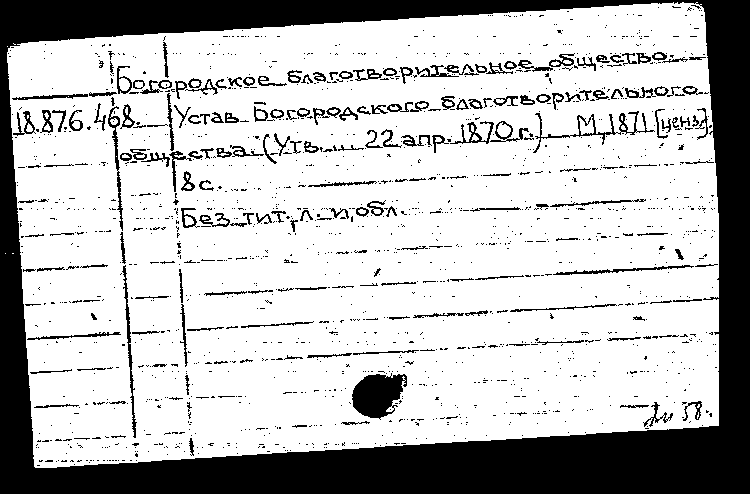 Богородское благотворительное общество.
18.876.468. Устав Богородского благотворительного
общества. (Утв. ... 22 апр. 1870 г.). М, 1871 [ценз].
8 с.
Без тит. л. и обл.
58.